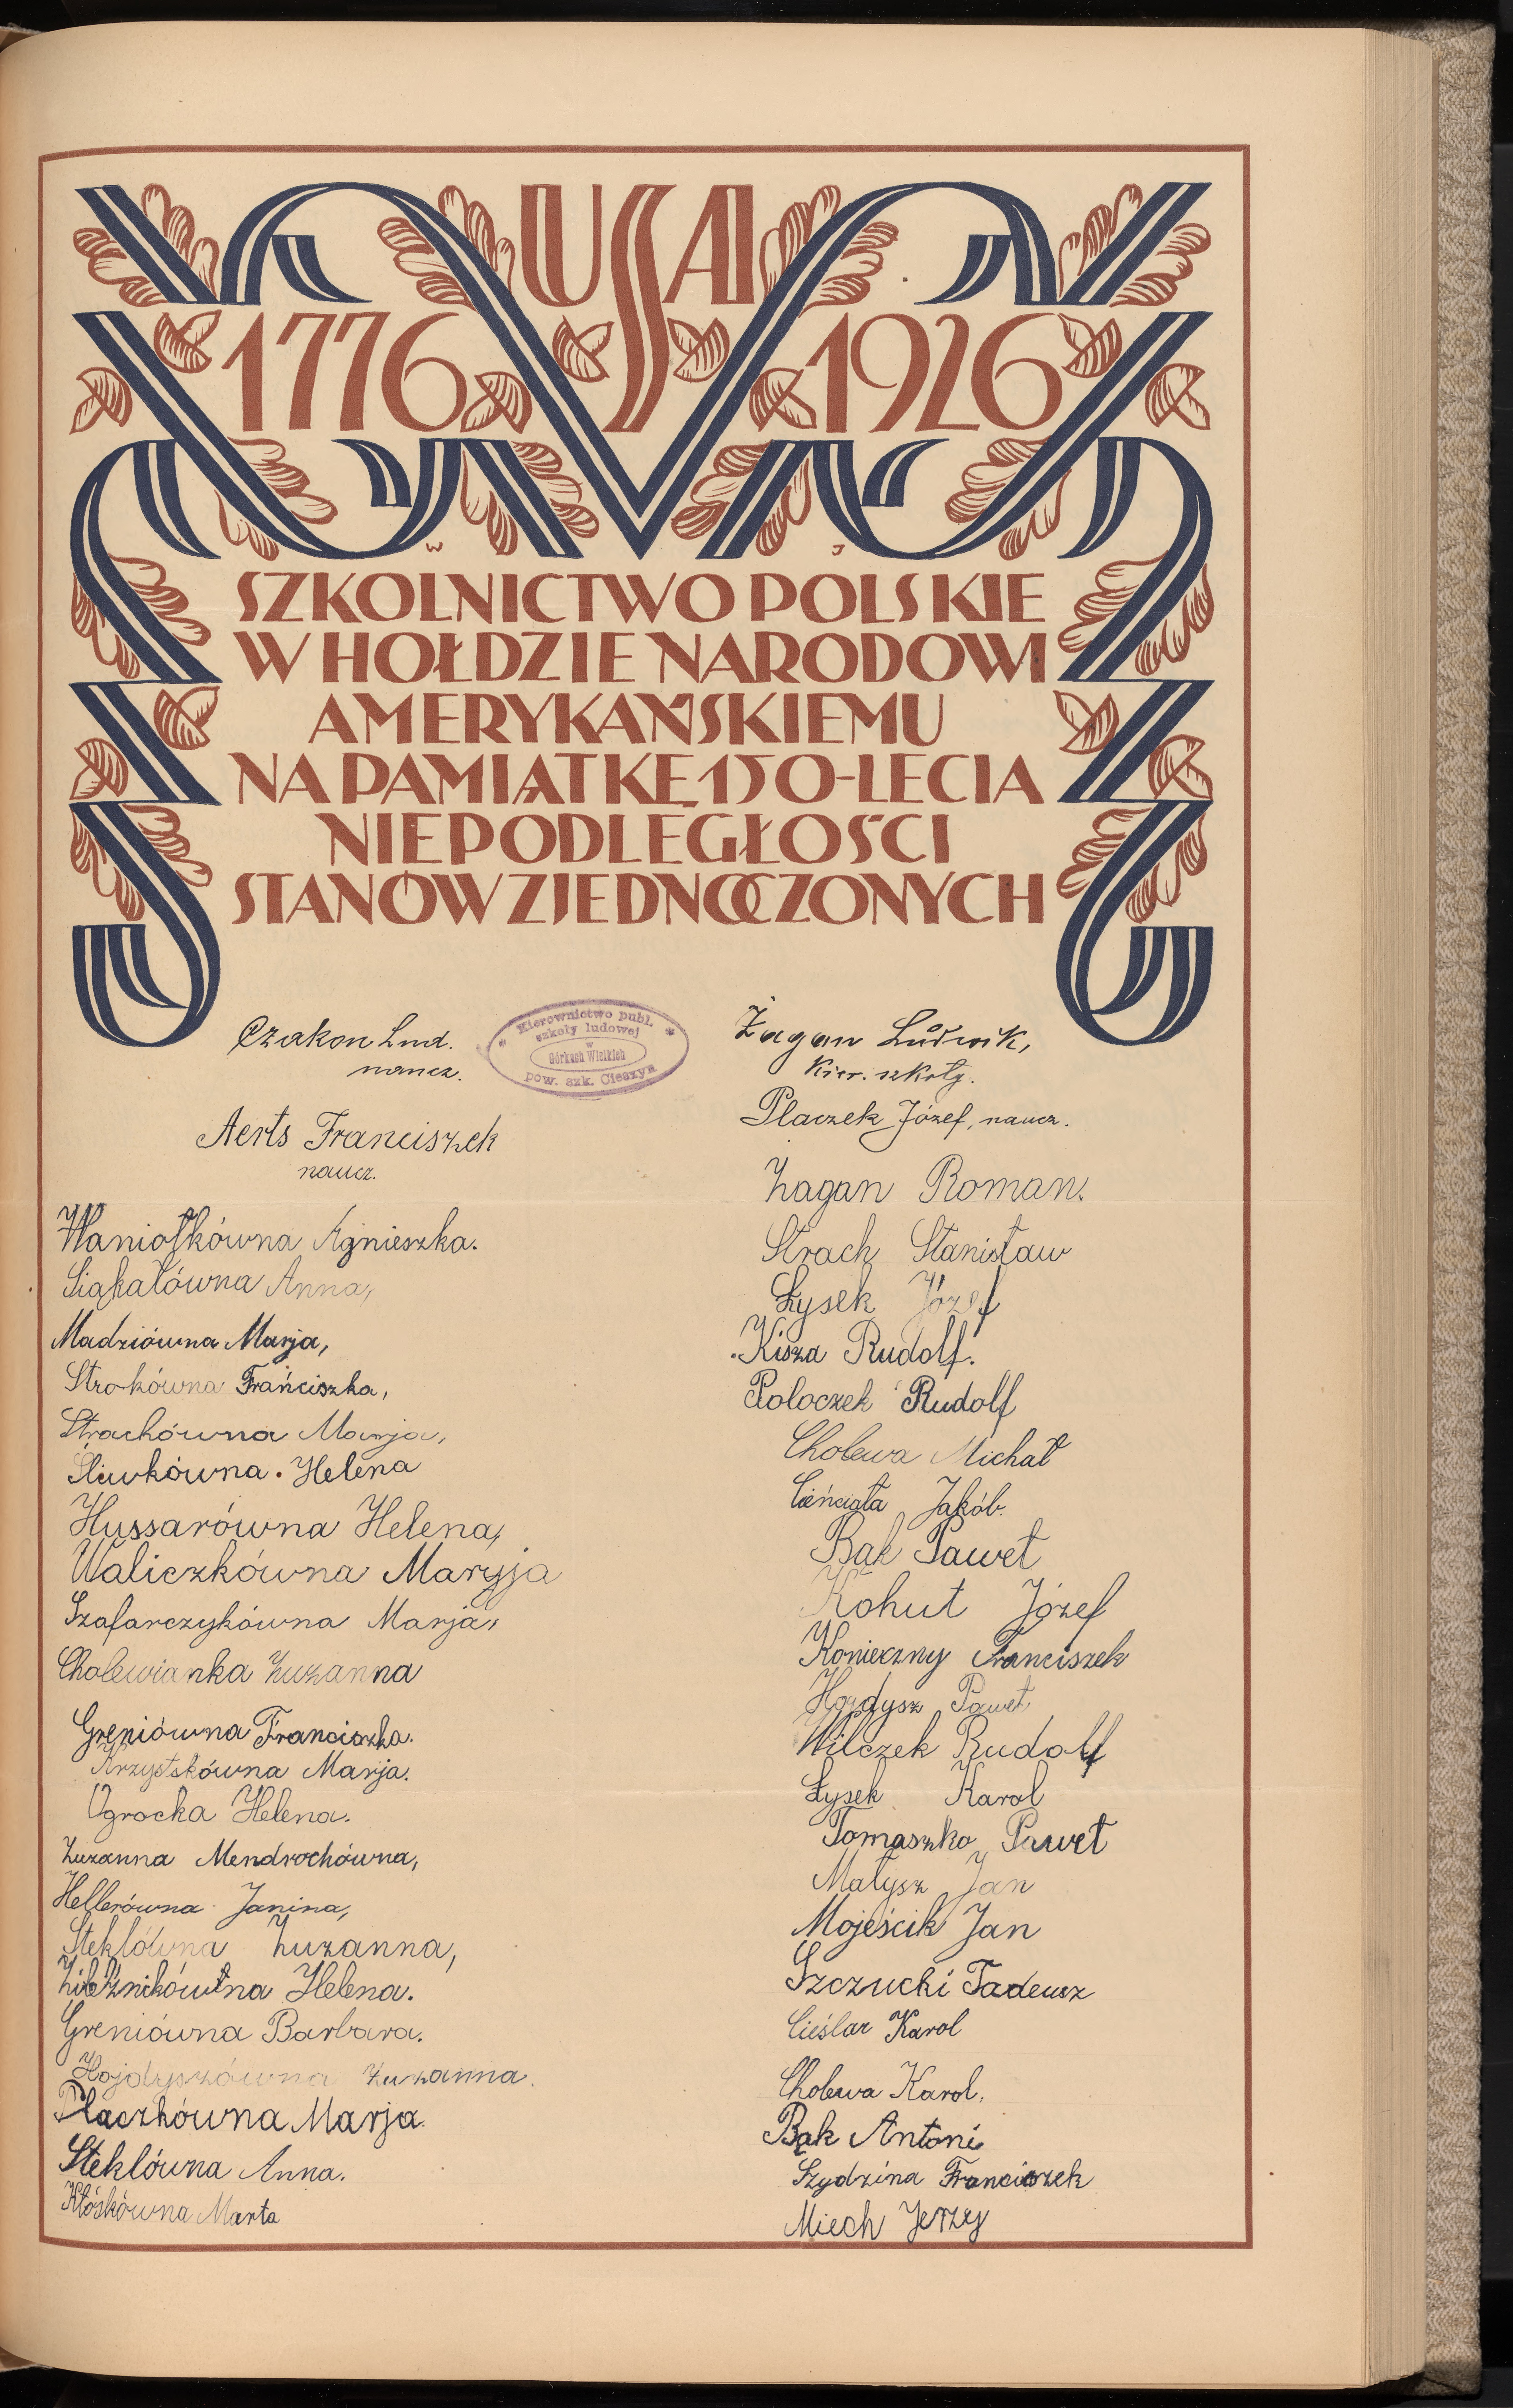 USA
1776 1926
W J
SZKOLNICTWO POLSKIE
W HOŁDZIE NARODOWI
AMERYKAŃSKIEMU
NA PAMIĄTKĘ 150-LECIA
NIEPODLEGŁOŚCI
STANÓW ZJEDNOCZONYCH
Czakon Lud.
naucz.
Kierownictwo publ.
szkoły ludowej
w
Górkach Wielkich
pow. szk. Cieszyn
Żagan Ludwik,
Kier. szkoły.
Placzek Józef, naucz.
Aerts Franciszek
naucz.
Haniołkówna Agnieszka.
Siąkałówna Anna,
Madziówna Marja,
Strokówna Franciszka,
Strachówna Marja,
Śliwkówna. Helena
Hussarówna Helena,
Waliczkówna Maryja
Szafarczykówna Marja,
Cholewianka Zuzanna
Greniówna Franciszka.
Krzystskówna Marja.
Ogrocka Helena.
Zuzanna Mendrochówna,
Hellerówna Janina,
Steklówna Zuzanna,
Helena.
Greniówna Barbara.
Hojdyszówna Zuzanna.
Placzkówna Marja.
Steklówna Anna.
Kłóskówna Marta
Żagan Roman.
Strach Stanisław
Łysek Józef
Kisza Rudolf.
Poloczek Rudolf
Cholewa Michał
Cieńciała Jakób.
Bąk Paweł
Kohut Józef
Konieczny Franciszek
Hojdysz Paweł
Wilczek Rudolf
Łysek Karol
Tomaszko Paweł
Małysz Jan
Mojeścik Jan
Szczucki Tadeusz
Cieślar Karol
Cholewa Karol.
Bąk Antoni
Szydzina Franciszek
Miech Jerzy